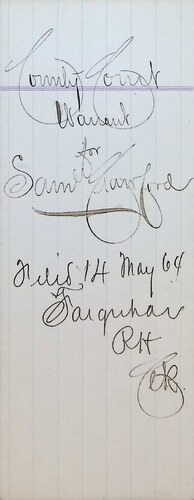 County Court
Warrant
for
Saml Crawford
Filed, 14 May 64
Farquhar
RH
Clk